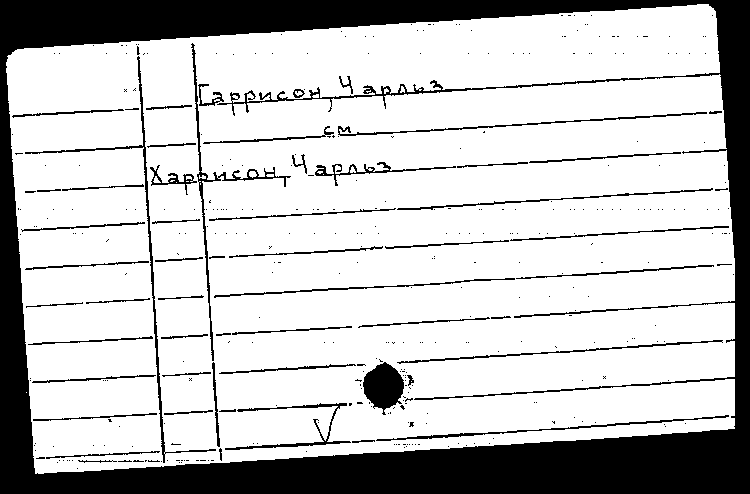 Гаррисон, Чарльз
см.
Харрисон, Чарльз